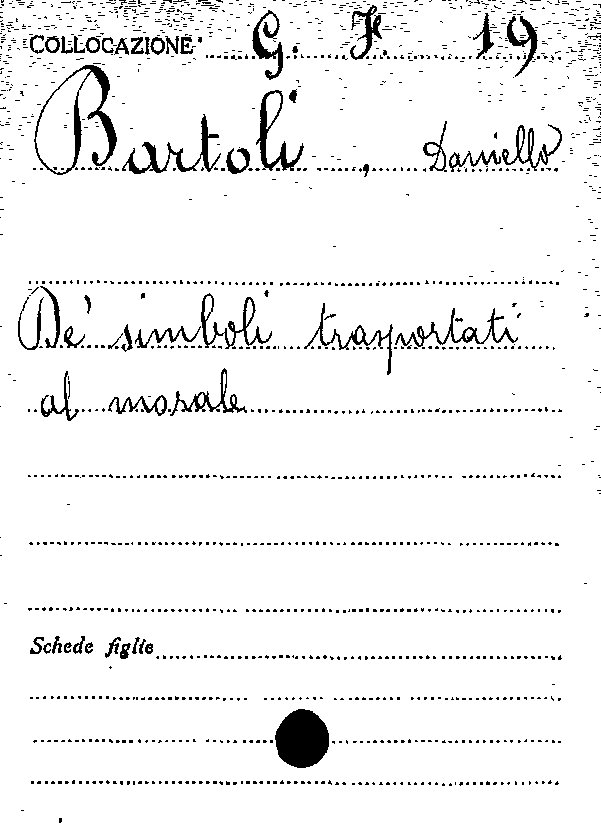 COLLOCAZIONE G. F. 19
Bartoli, Daniello
De' simboli trasportati
al morale
Schede figlie